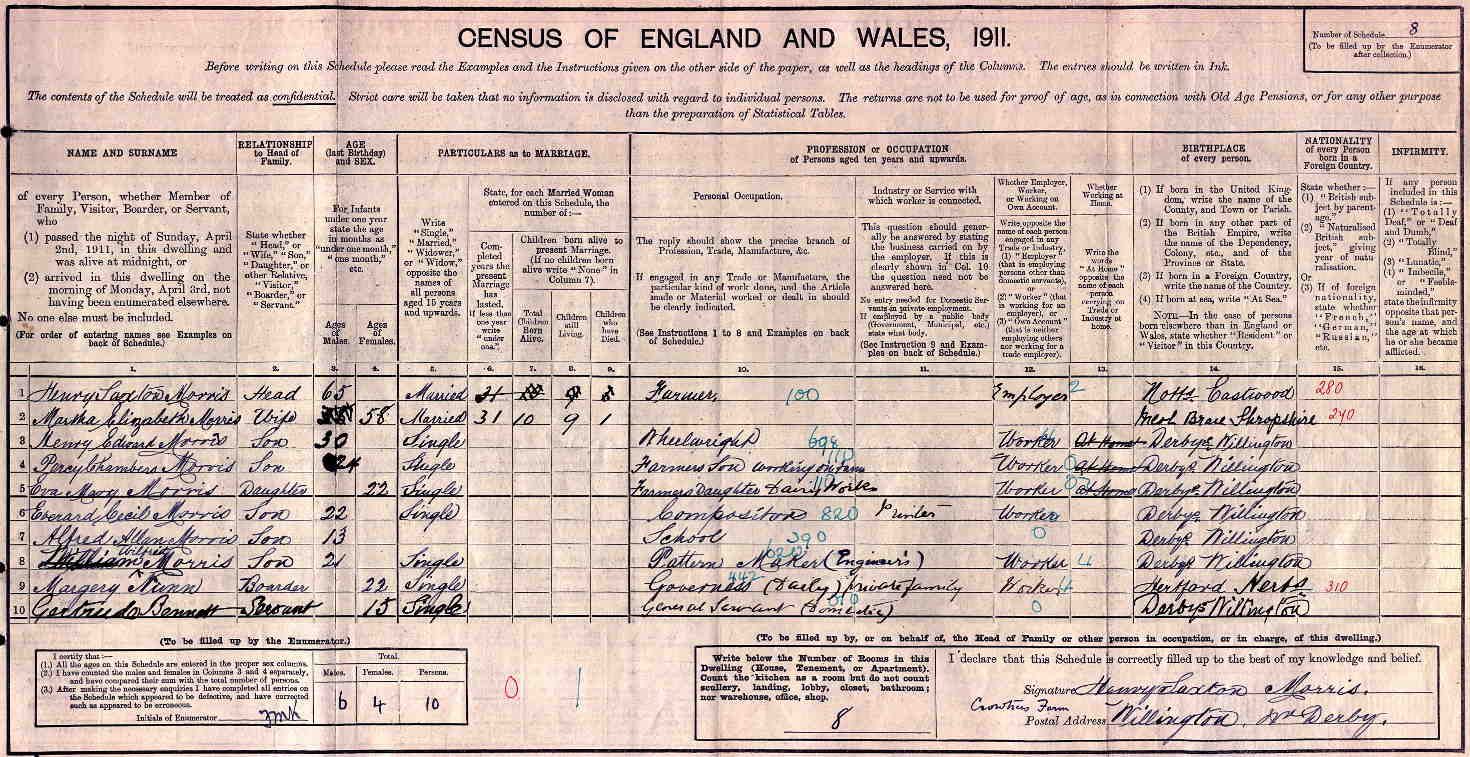 CENSUS OF ENGLAND AND WALES, 1911.
Number of Schedule 8
(To be filled up by the Enumerator after collection.)
Before writing on this Schedule please read the Examples and the Instructions given on the other side of the paper, as well as the headings of the Columns. The entries should be written in Ink.
The contents of the Schedule will be treated as confidential. Strict care will be taken that no information is disclosed with regard to individual persons. The returns are not to be used for proof of age, as in connection with Old Age Pensions, or for any other purpose
than the preparation of Statistical Tables.
NAME AND SURNAME
of every Person, whether Member of Family, Visitor, Boarder, or Servant, who
(1) passed the night of Sunday, April 2nd, 1911, in this dwelling and was alive at midnight, or
(2) arrived in this dwelling on the morning of Monday, April 3rd, not having been enumerated elsewhere.
No one else must be included.
(For order of entering names see Examples on back of Schedule.)
RELATIONSHIP to Head of Family.
State whether "Head," or "Wife," "Son," "Daughter," or other Relative, "Visitor," "Boarder," or "Servant."
AGE (last Birthday) and SEX.
For Infants under one year state the age in months as "under one month," "one month," etc.
Ages of Males.
Ages of Females.
PARTICULARS as to MARRIAGE.
Write "Single," "Married," "Widower," or "Widow," opposite the names of all persons aged 15 years and upwards.
State, for each Married Woman entered on this Schedule, the number of:—
Completed years the present Marriage has lasted. If less than one year write "under one."
Children born alive to present Marriage. (If no children born alive write "None" in Column 7).
Total Children Born Alive.
Children still Living.
Children who have Died.
PROFESSION or OCCUPATION of Persons aged ten years and upwards.
Personal Occupation.
The reply should show the precise branch of Profession, Trade, Manufacture, &c.
If engaged in any Trade or Manufacture, the particular kind of work done, and the Article made or Material worked or dealt in should be clearly indicated.
(See Instructions 1 to 8 and Examples on back of Schedule.)
Industry or Service with which worker is connected.
This question should generally be answered by stating the business carried on by the employer. If this is clearly shown in Col. 10 the question need not be answered here.
No entry needed for Domestic Servants in private employment.
If employed by a public body (Government, Municipal, etc.) state what body.
(See Instruction 9 and Examples on back of Schedule.)
Whether Employer, Worker, or Working on Own Account.
Write opposite the name of each person engaged in any Trade or Industry, (1) "Employer" (that is employing persons other than domestic servants), or
(2) "Worker" (that is working for an employer), or
(3) "Own Account" (that is neither employing others nor working for a trade employer).
Whether Working at Home.
Write the words "At Home" opposite the name of each person carrying on Trade or Industry at home.
BIRTHPLACE of every person.
(1) If born in the United Kingdom, write the name of the County, and Town or Parish.
(2) If born in any other part of the British Empire, write the name of the Dependency, Colony, etc., and of the Province or State.
(3) If born in a Foreign Country, write the name of the Country.
(4) If born at sea, write "At Sea."
NOTE.—In the case of persons born elsewhere than in England or Wales, state whether "Resident" or "Visitor" in this Country.
NATIONALITY of every Person born in a Foreign Country.
State whether:—
(1) "British subject by parentage,"
(2) "Naturalised British subject," giving year of naturalisation.
Or
(3) If of foreign nationality, state whether "French," "German," "Russian," etc.
INFIRMITY.
If any person included in this Schedule is:—
(1) "Totally Deaf," or "Deaf and Dumb,"
(2) "Totally Blind,"
(3) "Lunatic,"
(4) "Imbecile," or "Feeble-minded,"
state the infirmity opposite that person's name, and the age at which he or she became afflicted.
1. 2. 3. 4. 5. 6. 7. 8. 9. 10. 11. 12. 13. 14. 15. 16.
1 Henry Saxton Morris Head 65 Married Farmer, 100 Employer 2 Notts. Eastwood 280
2 Martha Elizabeth Morris Wife 58 Married 31 10 9 1 Meole Brace Shropshire 240
3 Henry Edward Morris Son 30 Single Wheelwright Worker At Home Derbys. Willington
4 Percy Chambers Morris Son 24 Single Farmers Son working on Farm Worker At Home Derbys. Willington
5 Eva Mary Morris Daughter 22 Single Farmers' Daughter Dairy Work Worker at Home Derbys. Willington
6 Everard Cecil Morris Son 22 Single Compositor 820 Printer Worker Derbys. Willington
7 Alfred Allen Morris Son 13 School 390 0 Derbys. Willington
8 William Wilfred Morris Son 21 Single Pattern Maker (Engineer's) Worker 4 Derbys. Willington
9 Margery Nunn Boarder 22 Single Governess (Daily) Private family Worker Hertford Herts 310
10 Gertrude Bennett Servant 15 Single General Servant (Domestic) 0 Derbys Willington
(To be filled up by the Enumerator.)
I certify that:—
(1.) All the ages on this Schedule are entered in the proper sex columns.
(2.) I have counted the males and females in Columns 3 and 4 separately, and have compared their sum with the total number of persons.
(3.) After making the necessary enquiries I have completed all entries on the Schedule which appeared to be defective, and have corrected such as appeared to be erroneous.
Initials of Enumerator
Total.
Males. Females. Persons.
6 4 10
0 1
(To be filled up by, or on behalf of, the Head of Family or other person in occupation, or in charge, of this dwelling.)
Write below the Number of Rooms in this Dwelling (House, Tenement, or Apartment). Count the kitchen as a room but do not count scullery, landing, lobby, closet, bathroom; nor warehouse, office, shop.
8
I declare that this Schedule is correctly filled up to the best of my knowledge and belief.
Signature Henry Saxton Morris.
Postal Address Crowtrees Farm
Willington, Nr Derby.